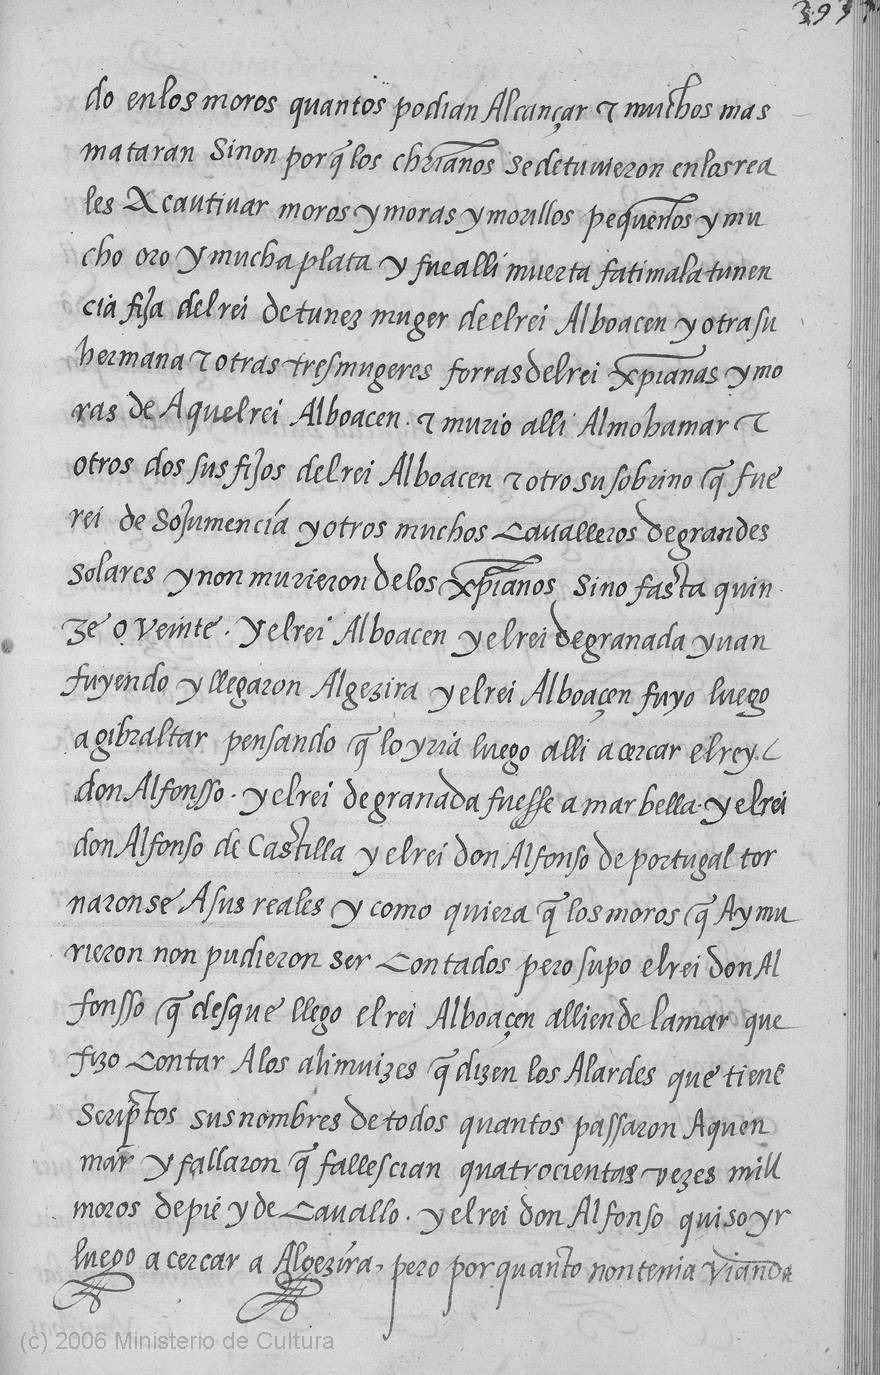 do en los moros quantos podian Alcançar τ muchos mas
mataran Sinon porq̃ los chrianos se detuvieron en los rea
les A cautivar moros y moras y morillos pequeños y mu
cho oro y mucha plata y fue alli muerta fatima la tunen
cia fija del rei de tunez muger de el rei Alboacen y otra su
hermana τ otras tres mugeres forras del rei xpianas y mo
ras de Aquel rei Alboacen. τ murio alli Almohamar τ
otros dos sus fijos del rei Alboacen τ otro su sobrino q̃ fue
rei de Sojumencia y otros muchos Cavalleros de grandes
solares y non murieron de los xpianos Sino fasta quin
ze o veinte. Y el rei Alboacen y el rei de granada yuan
fuyendo y llegaron Algezira y el rei Alboaçen fuyo luego
a gibraltar pensando q̃ lo yria luego alli a cercar el rey
don Alfonsso. y el rei de granada fuesse a marbella. y el rei
don Alfonso de Castilla y el rei don Alfonso de portugal tor
naronse A sus reales y como quiera q̃ los moros q̃ Ay mu
rieron non pudieron ser Contados pero supo el rei don Al
fonsso q̃ desque llego el rei Alboaçen alliende la mar que
fizo Contar A los alimuizes q̃ dizen los Alardes que tiene
Scriptos sus nombres de todos quantos passaron Aquen
mar y fallaron q̃ fallescian quatrocientas vezes mill
moros de pie y de Cavallo. y el rei don Alfonso quiso yr
luego a cercar a Algezira, pero por quanto non tenia vianda
(c) 2006 Ministerio de Cultura